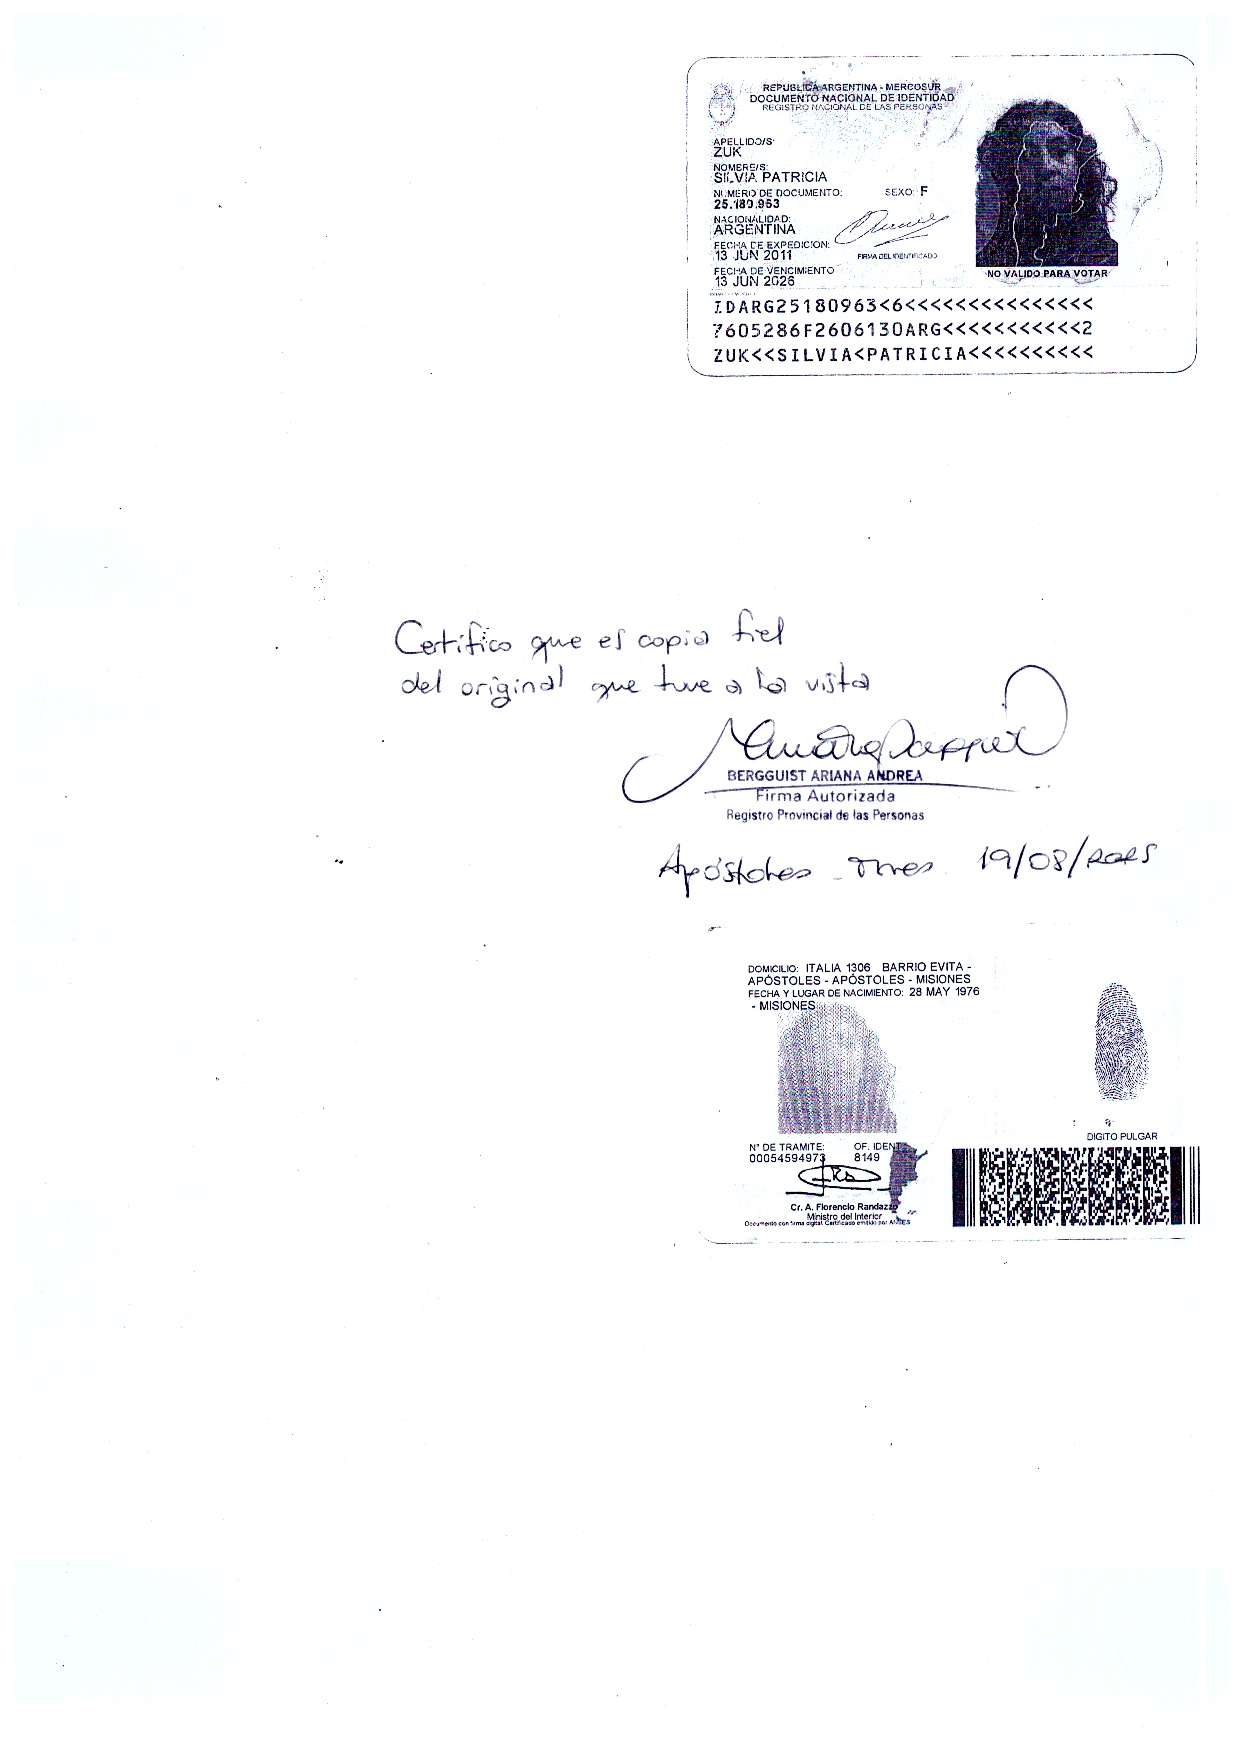 REPUBLICA ARGENTINA - MERCOSUR
DOCUMENTO NACIONAL DE IDENTIDAD
REGISTRO NACIONAL DE LAS PERSONAS
APELLIDO/S
ZUK
NOMBRE/S:
SILVIA PATRICIA
NUMERO DE DOCUMENTO: SEXO: F
25.180.963
NACIONALIDAD:
ARGENTINA
FECHA DE EXPEDICION:
13 JUN 2011 FIRMA DEL IDENTIFICADO
FECHA DE VENCIMIENTO
13 JUN 2026 NO VALIDO PARA VOTAR
IDARG25180963<6<<<<<<<<<<<<<<<
7605286F2606130ARG<<<<<<<<<<<2
ZUK<<SILVIA<PATRICIA<<<<<<<<<<
Certifico que es copia fiel
del original que tuve a la vista
BERGGUIST ARIANA ANDREA
Firma Autorizada
Registro Provincial de las Personas
Apóstoles 19/08/2025
DOMICILIO: ITALIA 1306 BARRIO EVITA -
APÓSTOLES - APÓSTOLES - MISIONES
FECHA Y LUGAR DE NACIMIENTO: 28 MAY 1976
- MISIONES
DIGITO PULGAR
N° DE TRAMITE: OF. IDENT
00054594973 8149
Cr. A. Florencio Randazzo
Ministro del Interior
Documento con firma digital. Certificado emitido por ANSES